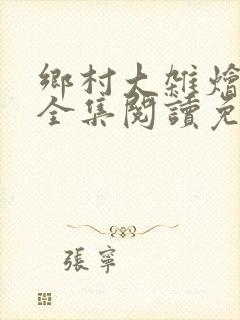 鄉村大雜燴
全集閱讀免
張寧